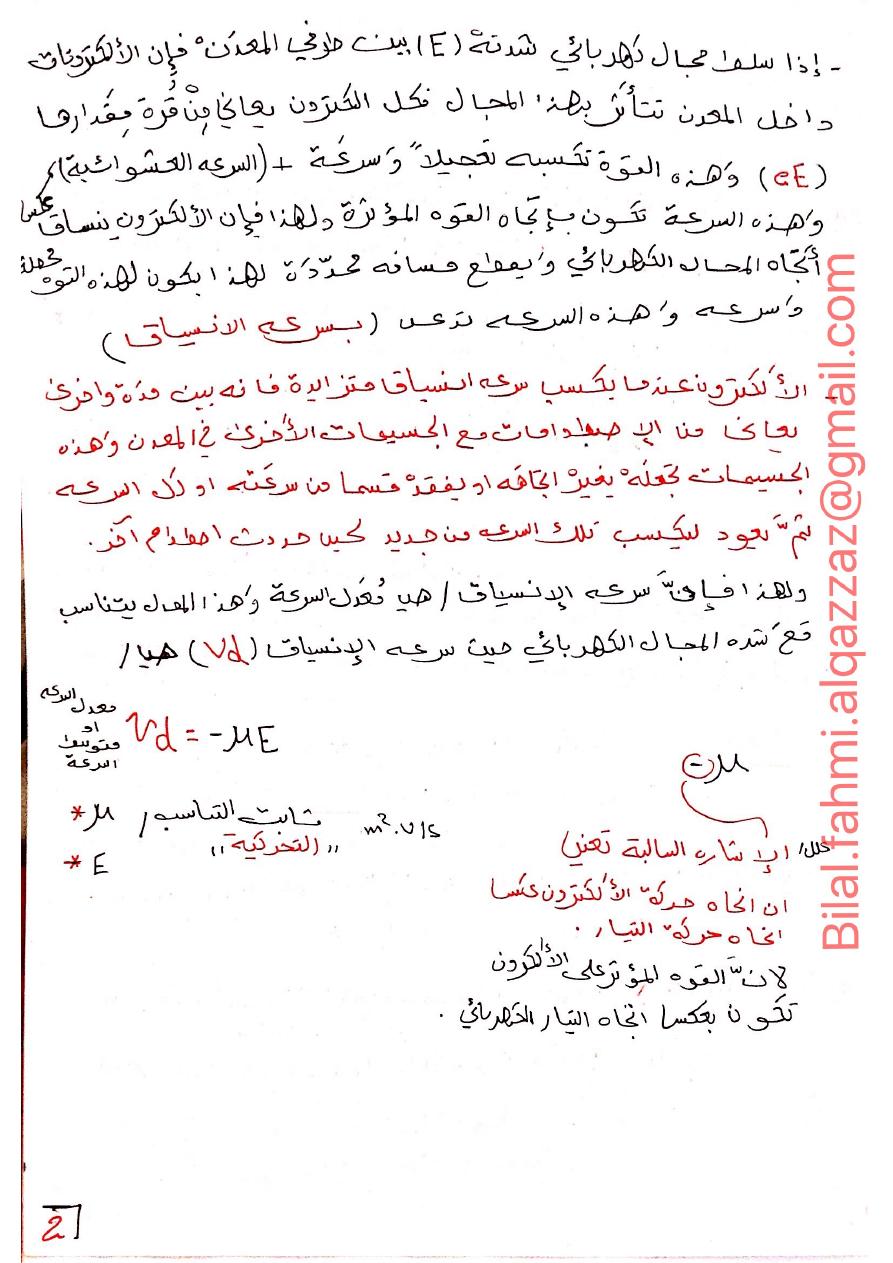 - إذا سلط مجال كهربائي شدته (E) بين طرفي المعدن فإن الألكترونات
داخل المعدن تتأثر بهذا المجال فكل الكترون يعاني من قوة مقدارها
(eE) وهذه القوة تكسبه تعجيلاً وسرعة + (السرعه العشوائية)
وهذه السرعة تكون بإتجاه القوه المؤثرة ولهذا فإن الألكترون ينساق عكس
أتجاه المجال الكهربائي ويقطع مسافه محددة لهذا يكون لهذه القوه محصلة
وسرعه وهذه السرعه تدعى (بسرعه الانسياق)
- الألكترون عندما يكسب سرعه انسياق متزايدة فانه بين مدة واخرى
يعاني من الإصطدامات مع الجسيمات الأخرى في المعدن وهذه
الجسيمات تجعله يغير اتجاهه او يفقد قسما من سرعته او كل السرعه
ثمَّ يعود ليكسب تلك السرعه من جديد لحين حدوث اصطدام آخر.
ولهذا فإنَّ سرعه الإنسياق / هي مُعدل السرعة وهذا المعدل يتناسب
مع شده المجال الكهربائي حيث سرعه الإنسياق (Vd) هي /
معدل السرعه
او
متوسط
السرعة
Vd = -μE
-μ
* μ / ثابت التناسب m².v/s
"التحركية"
* E
علل / الإشاره السالبة تعني
ان اتجاه حركة الألكترون عكس
اتجاه حركة التيار.
لانَّ القوه المؤثر على الألكرون
تكون بعكس اتجاه التيار الكهربائي.
2
Bilal.fahmi.alqazzaz@gmail.com